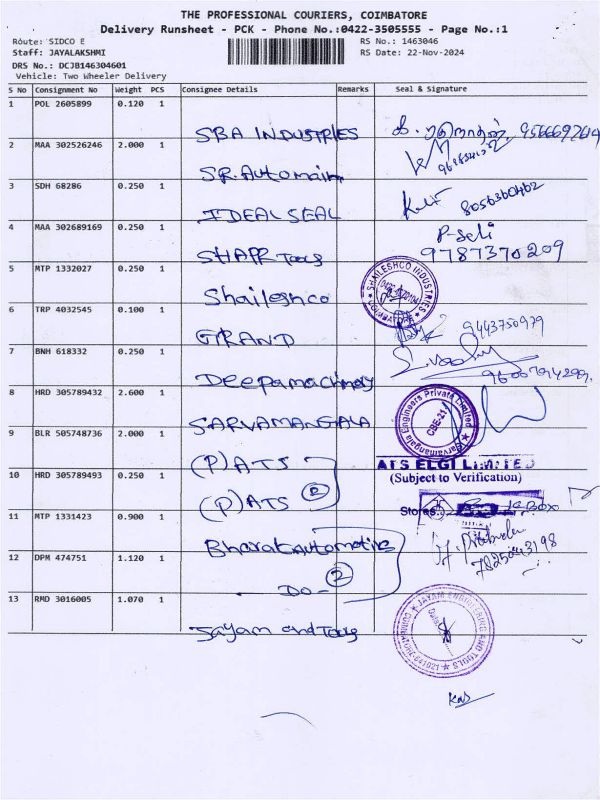 THE PROFESSIONAL COURIERS, COIMBATORE
Delivery Runsheet - PCK - Phone No.:0422-3505555 - Page No.:1
Route: SIDCO E RS No.: 1463046
Staff: JAYALAKSHMI RS Date: 22-Nov-2024
DRS No.: DCJB146304601
Vehicle: Two Wheeler Delivery
S No Consignment No Weight PCS Consignee Details Remarks Seal & Signature
1 POL 2605899 0.120 1
SBA INDUSTRIES
2 MAA 302526246 2.000 1
SR.Automain
3 SDH 68286 0.250 1
IDEAL SEAL 8056360462
4 MAA 302689169 0.250 1 P-Seli
SHARP Tools 9787370209
5 MTP 1332027 0.250 1 SHAILESHCO INDUSTRIES
Shaileshco
6 TRP 4032545 0.100 1
GRAND 9443750979
7 BNH 618332 0.250 1
Deepamachinery
8 HRD 305789432 2.600 1 Sarvamangala Engineers Private Limited
CBE-21
SARVAMANGALA
9 BLR 505748736 2.000 1
(P) ATS ATS ELGI LIMITED
10 HRD 305789493 0.250 1 (Subject to Verification)
(P) ATS 2 Stores
11 MTP 1331423 0.900 1
Bharat automotive
12 DPM 474751 1.120 1 7825043198
-Do- 2
13 RMD 3016005 1.070 1 JAYAM ENGINEERING AND TOOLS
Jayam and Tools